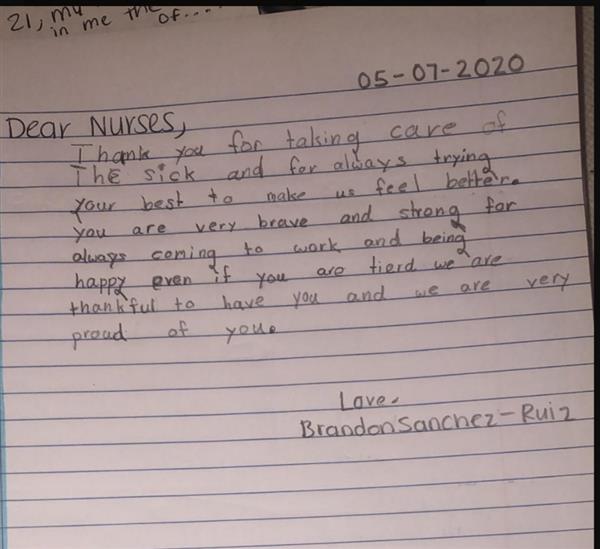 21, my
in me the
of....
05-07-2020
Dear Nurses,
Thank you for taking care of
The sick and for always trying
your best to make us feel better.
you are very brave and strong for
always coming to work and being
happy even if you are tierd we are
thankful to have you and we are very
proud of you.
Love.
Brandon Sanchez-Ruiz